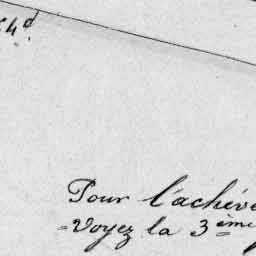 4d
Pour l'achéve
=Voyez la 3ème